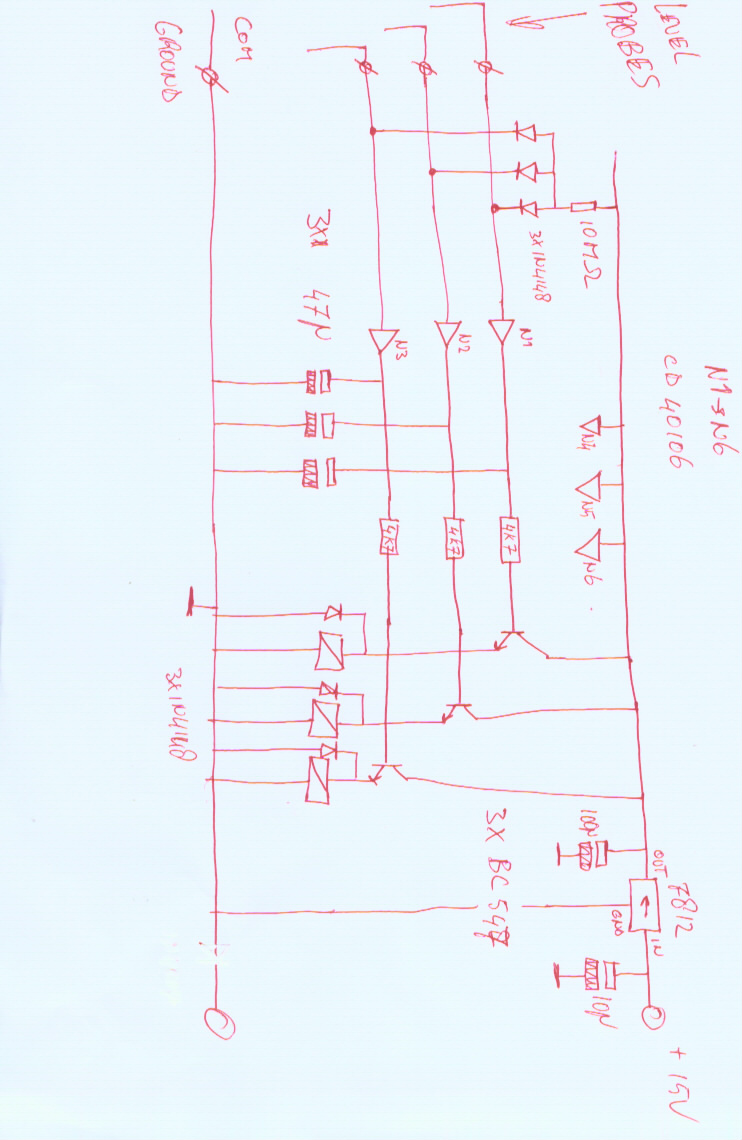 LEVEL
PROBES
COM
GROUND
10MΩ
3x1N4148
N1→N6
CD 40106
N1
N2
N3
N4
N5
N6
3x
47µ
4K7
4K7
4K7
3x1N4148
3X BC547
100µ
OUT
7812
IN
GND
10µ
+ 15V